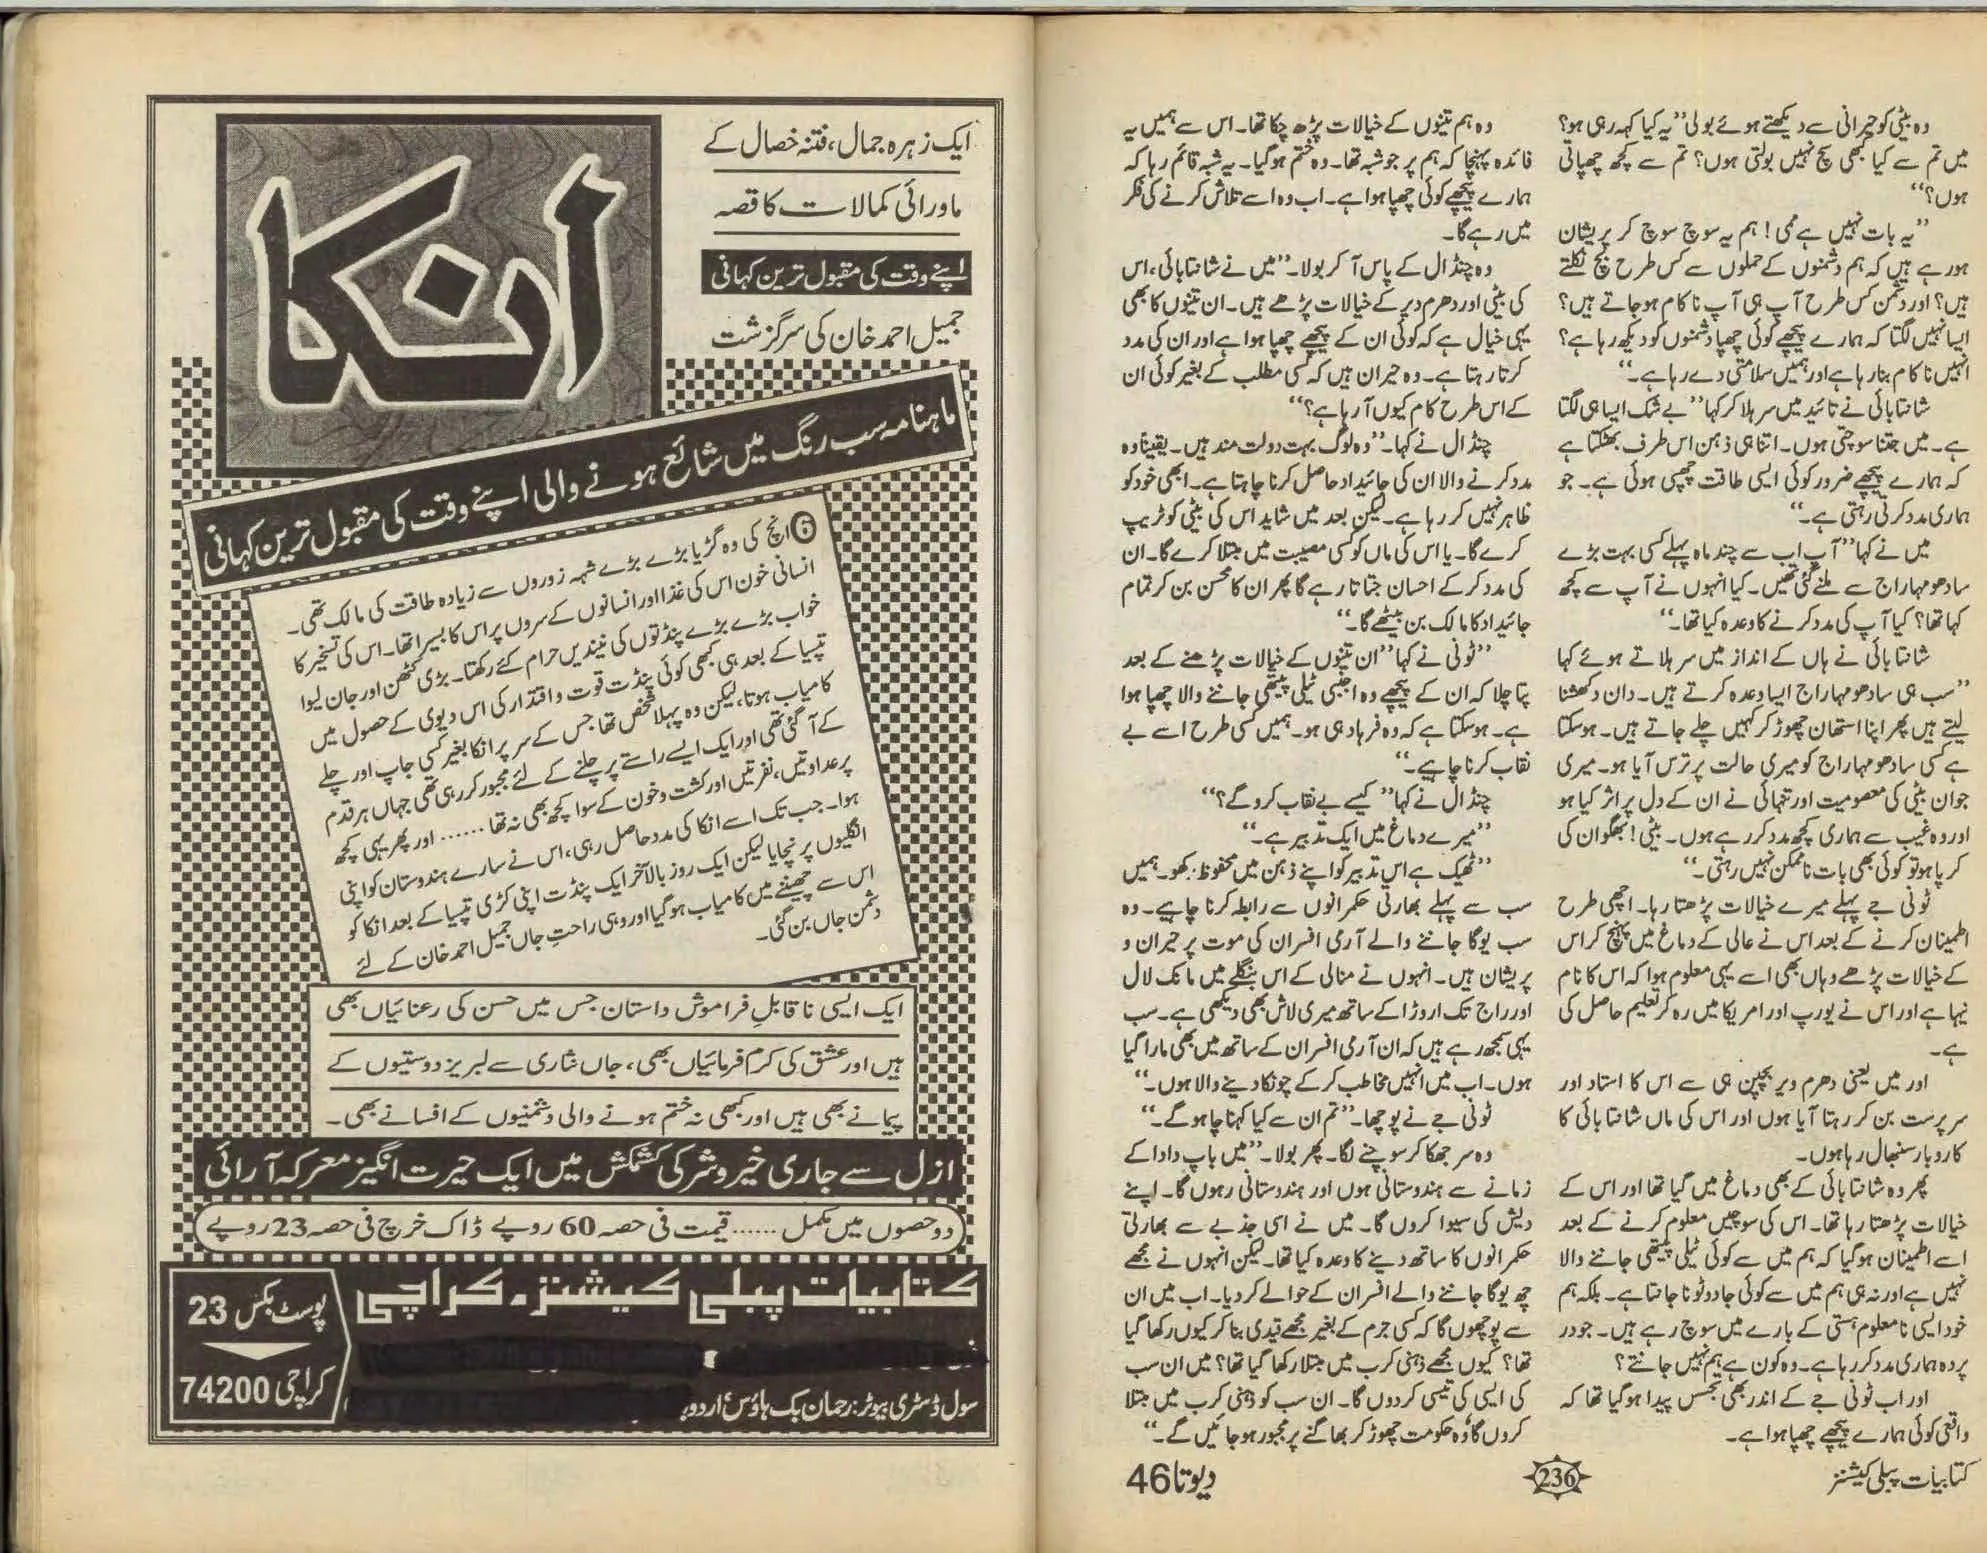 وہ بیٹی کو حیرانی سے دیکھتے ہوئے بولی ”یہ کیا کہہ رہی ہو؟
میں تم سے کیا کبھی سچ نہیں بولتی ہوں؟ تم سے کچھ چھپاتی
ہوں؟“
”یہ بات نہیں ہے ممی! ہم یہ سوچ سوچ کر پریشان
ہورہے ہیں کہ ہم دشمنوں کے حملوں سے کس طرح بچ نکلتے
ہیں؟ اور دشمن کس طرح آپ ہی آپ ناکام ہوجاتے ہیں؟
ایسا نہیں لگتا کہ ہمارے پیچھے کوئی چھپا دشمنوں کو دیکھ رہا ہے؟
انہیں ناکام بنا رہا ہے اور ہمیں سلامتی دے رہا ہے۔“
شانتا بائی نے تائید میں سر ہلا کر کہا ”بے شک ایسا ہی لگتا
ہے۔ میں جتنا سوچتی ہوں۔ اتنا ہی ذہن اس طرف بھٹکتا ہے
کہ ہمارے پیچھے ضرور کوئی ایسی طاقت چھپی ہوئی ہے۔ جو
ہماری مدد کرتی رہتی ہے۔“
میں نے کہا ”آپ اب سے چند ماہ پہلے کسی بہت بڑے
سادھو مہاراج سے ملنے گئی تھیں۔ کیا انہوں نے آپ سے کچھ
کہا تھا؟ کیا آپ کی مدد کرنے کا وعدہ کیا تھا۔“
شانتا بائی نے ہاں کے انداز میں سر ہلاتے ہوئے کہا
”سب ہی سادھو مہاراج ایسا وعدہ کرتے ہیں۔ دان دکھشنا
لیتے ہیں پھر اپنا استھان چھوڑ کر کہیں چلے جاتے ہیں۔ ہوسکتا
ہے کسی سادھو مہاراج کو میری حالت پر ترس آیا ہو۔ میری
جوان بیٹی کی معصومیت اور تنہائی نے ان کے دل پر اثر کیا ہو
اور وہ غیب سے ہماری کچھ مدد کر رہے ہوں۔ بیٹی! بھگوان کی
کرپا ہو تو کوئی بھی بات ناممکن نہیں رہتی۔“
ٹونی جے پہلے میرے خیالات پڑھتا رہا۔ اچھی طرح
اطمینان کرنے کے بعد اس نے عالی کے دماغ میں پہنچ کر اس
کے خیالات پڑھے وہاں بھی اسے یہی معلوم ہوا کہ اس کا نام
نیہا ہے اور اس نے یورپ اور امریکا میں رہ کر تعلیم حاصل کی
ہے۔
اور میں یعنی دھرم ویر بچپن ہی سے اس کا استاد اور
سرپرست بن کر رہتا آیا ہوں اور اس کی ماں شانتا بائی کا
کاروبار سنبھال رہا ہوں۔
پھر وہ شانتا بائی کے بھی دماغ میں گیا تھا اور اس کے
خیالات پڑھتا رہا تھا۔ اس کی سوچیں معلوم کرنے کے بعد
اسے اطمینان ہوگیا کہ ہم میں سے کوئی ٹیلی پیتھی جاننے والا
نہیں ہے اور نہ ہی ہم میں سے کوئی جادو ٹونا جانتا ہے۔ بلکہ ہم
خود ایسی نامعلوم ہستی کے بارے میں سوچ رہے ہیں۔ جو در
پردہ ہماری مدد کر رہا ہے۔ وہ کون ہے ہم نہیں جانتے؟
اور اب ٹونی جے کے اندر بھی تجسس پیدا ہوگیا تھا کہ
واقعی کوئی ہمارے پیچھے چھپا ہوا ہے۔
وہ ہم تینوں کے خیالات پڑھ چکا تھا۔ اس سے ہمیں یہ
فائدہ پہنچا کہ ہم پر جو شبہ تھا۔ وہ ختم ہوگیا۔ یہ شبہ قائم رہا کہ
ہمارے پیچھے کوئی چھپا ہوا ہے۔ اب وہ اسے تلاش کرنے کی فکر
میں رہے گا۔
وہ چنڈال کے پاس آ کر بولا۔ ”میں نے شانتا بائی، اس
کی بیٹی اور دھرم ویر کے خیالات پڑھے ہیں۔ ان تینوں کا بھی
یہی خیال ہے کہ کوئی ان کے پیچھے چھپا ہوا ہے اور ان کی مدد
کرتا رہتا ہے۔ وہ حیران ہیں کہ کسی مطلب کے بغیر کوئی ان
کے اس طرح کام کیوں آ رہا ہے؟“
چنڈال نے کہا۔ ”وہ لوگ بہت دولت مند ہیں۔ یقیناً وہ
مدد کرنے والا ان کی جائیداد حاصل کرنا چاہتا ہے۔ ابھی خود کو
ظاہر نہیں کر رہا ہے۔ لیکن بعد میں شاید اس کی بیٹی کو ٹریپ
کرے گا۔ یا اس کی ماں کو کسی مصیبت میں مبتلا کرے گا۔ ان
کی مدد کر کے احسان جتاتا رہے گا پھر ان کا محسن بن کر تمام
جائیداد کا مالک بن بیٹھے گا۔“
”ٹونی نے کہا ”ان تینوں کے خیالات پڑھنے کے بعد
پتا چلا کہ ان کے پیچھے وہ اجنبی ٹیلی پیتھی جاننے والا چھپا ہوا
ہے۔ ہوسکتا ہے کہ وہ فرہاد ہی ہو۔ ہمیں کسی طرح اسے بے
نقاب کرنا چاہیے۔“
چنڈال نے کہا ”کیسے بے نقاب کرو گے؟“
”میرے دماغ میں ایک تدبیر ہے۔“
”ٹھیک ہے اس تدبیر کو اپنے ذہن میں محفوظ رکھو۔ ہمیں
سب سے پہلے بھارتی حکمرانوں سے رابطہ کرنا چاہیے۔ وہ
سب یوگا جاننے والے آرمی افسران کی موت پر حیران و
پریشان ہیں۔ انہوں نے منالی کے اس بنگلے میں مانک لال
اور راج تک اروڑا کے ساتھ میری لاش بھی دیکھی ہے۔ سب
یہی سمجھ رہے ہیں کہ ان آرمی افسران کے ساتھ میں بھی مارا گیا
ہوں۔ اب میں انہیں مخاطب کر کے چونکا دینے والا ہوں۔“
ٹونی جے نے پوچھا۔ ”تم ان سے کیا کہنا چاہو گے۔“
وہ سر جھکا کر سوچنے لگا۔ پھر بولا۔ ”میں باپ دادا کے
زمانے سے ہندوستانی ہوں اور ہندوستانی رہوں گا۔ اپنے
دیش کی سیوا کروں گا۔ میں نے اسی جذبے سے بھارتی
حکمرانوں کا ساتھ دینے کا وعدہ کیا تھا۔ لیکن انہوں نے مجھے
چھ یوگا جاننے والے افسران کے حوالے کر دیا۔ اب میں ان
سے پوچھوں گا کہ کسی جرم کے بغیر مجھے قیدی بنا کر کیوں رکھا گیا
تھا؟ کیوں مجھے ذہنی کرب میں مبتلا رکھا گیا تھا؟ میں ان سب
کی ایسی کی تیسی کر دوں گا۔ ان سب کو ذہنی کرب میں مبتلا
کروں گا وہ حکومت چھوڑ کر بھاگنے پر مجبور ہوجائیں گے۔“
کتابیات پبلی کیشنز
236
دیوتا 46
ایک زہرہ جمال، فتنہ خصال کے
ماورائی کمالات کا قصہ
اپنے وقت کی مقبول ترین کہانی
جمیل احمد خان کی سرگزشت
انکا
ماہنامہ سب رنگ میں شائع ہونے والی اپنے وقت کی مقبول ترین کہانی
6 انچ کی وہ گڑیا بڑے بڑے شہہ زوروں سے زیادہ طاقت کی مالک تھی۔
انسانی خون اس کی غذا اور انسانوں کے سروں پر اس کا بسیرا تھا۔ اس کی تسخیر کا
خواب بڑے بڑے پنڈتوں کی نیندیں حرام کئے رکھتا۔ بڑی کٹھن اور جان لیوا
تپسیا کے بعد ہی کبھی کوئی پنڈت قوت و اقتدار کی اس دیوی کے حصول میں
کامیاب ہوتا، لیکن وہ پہلا شخص تھا جس کے سر پر انکا بغیر کسی جاپ اور چلے
کے آ گئی تھی اور ایک ایسے راستے پر چلنے کے لئے مجبور کر رہی تھی جہاں ہر قدم
پر عداوتیں، نفرتیں اور کشت و خون کے سوا کچھ بھی نہ تھا ...... اور پھر یہی کچھ
ہوا۔ جب تک اسے انکا کی مدد حاصل رہی، اس نے سارے ہندوستان کو اپنی
انگلیوں پر نچایا لیکن ایک روز بالآخر ایک پنڈت اپنی کڑی تپسیا کے بعد انکا کو
اس سے چھیننے میں کامیاب ہوگیا اور وہی راحتِ جاں جمیل احمد خان کے لئے
دشمن جاں بن گئی۔
ایک ایسی ناقابلِ فراموش داستان جس میں حسن کی رعنائیاں بھی
ہیں اور عشق کی کرم فرمائیاں بھی، جاں نثاری سے لبریز دوستیوں کے
پیمانے بھی ہیں اور کبھی نہ ختم ہونے والی دشمنیوں کے افسانے بھی۔
ازل سے جاری خیر و شر کی کشمکش میں ایک حیرت انگیز معرکہ آرائی
دو حصوں میں مکمل ...... قیمت فی حصہ 60 روپے ڈاک خرچ فی حصہ 23 روپے
کتابیات پبلی کیشنز۔ کراچی
پوسٹ بکس 23
کراچی 74200
سول ڈسٹری بیوٹر: رحمان بک ہاؤس اردو